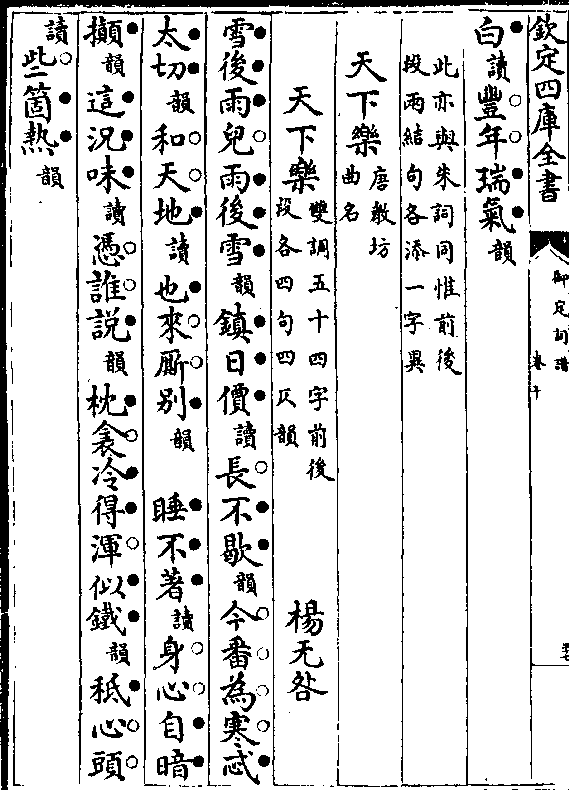 欽定四庫全書
御定詞譜
卷十
白讀豐年瑞氣韻
此亦與朱詞同惟前後
段兩結句各添一字異
天下樂
唐敎坊
曲名
天下樂
雙調五十四字前後
段各四句四仄韻
楊无咎
雪後雨兒雨後雪韻鎮日價讀長不歇韻今番為寒忒
太切韻和天地讀也來廝別韻 睡不著讀身心自暗
攧韻這況味讀憑誰説韻枕衾冷得渾似鐵韻秪心頭
讀些箇熱韻